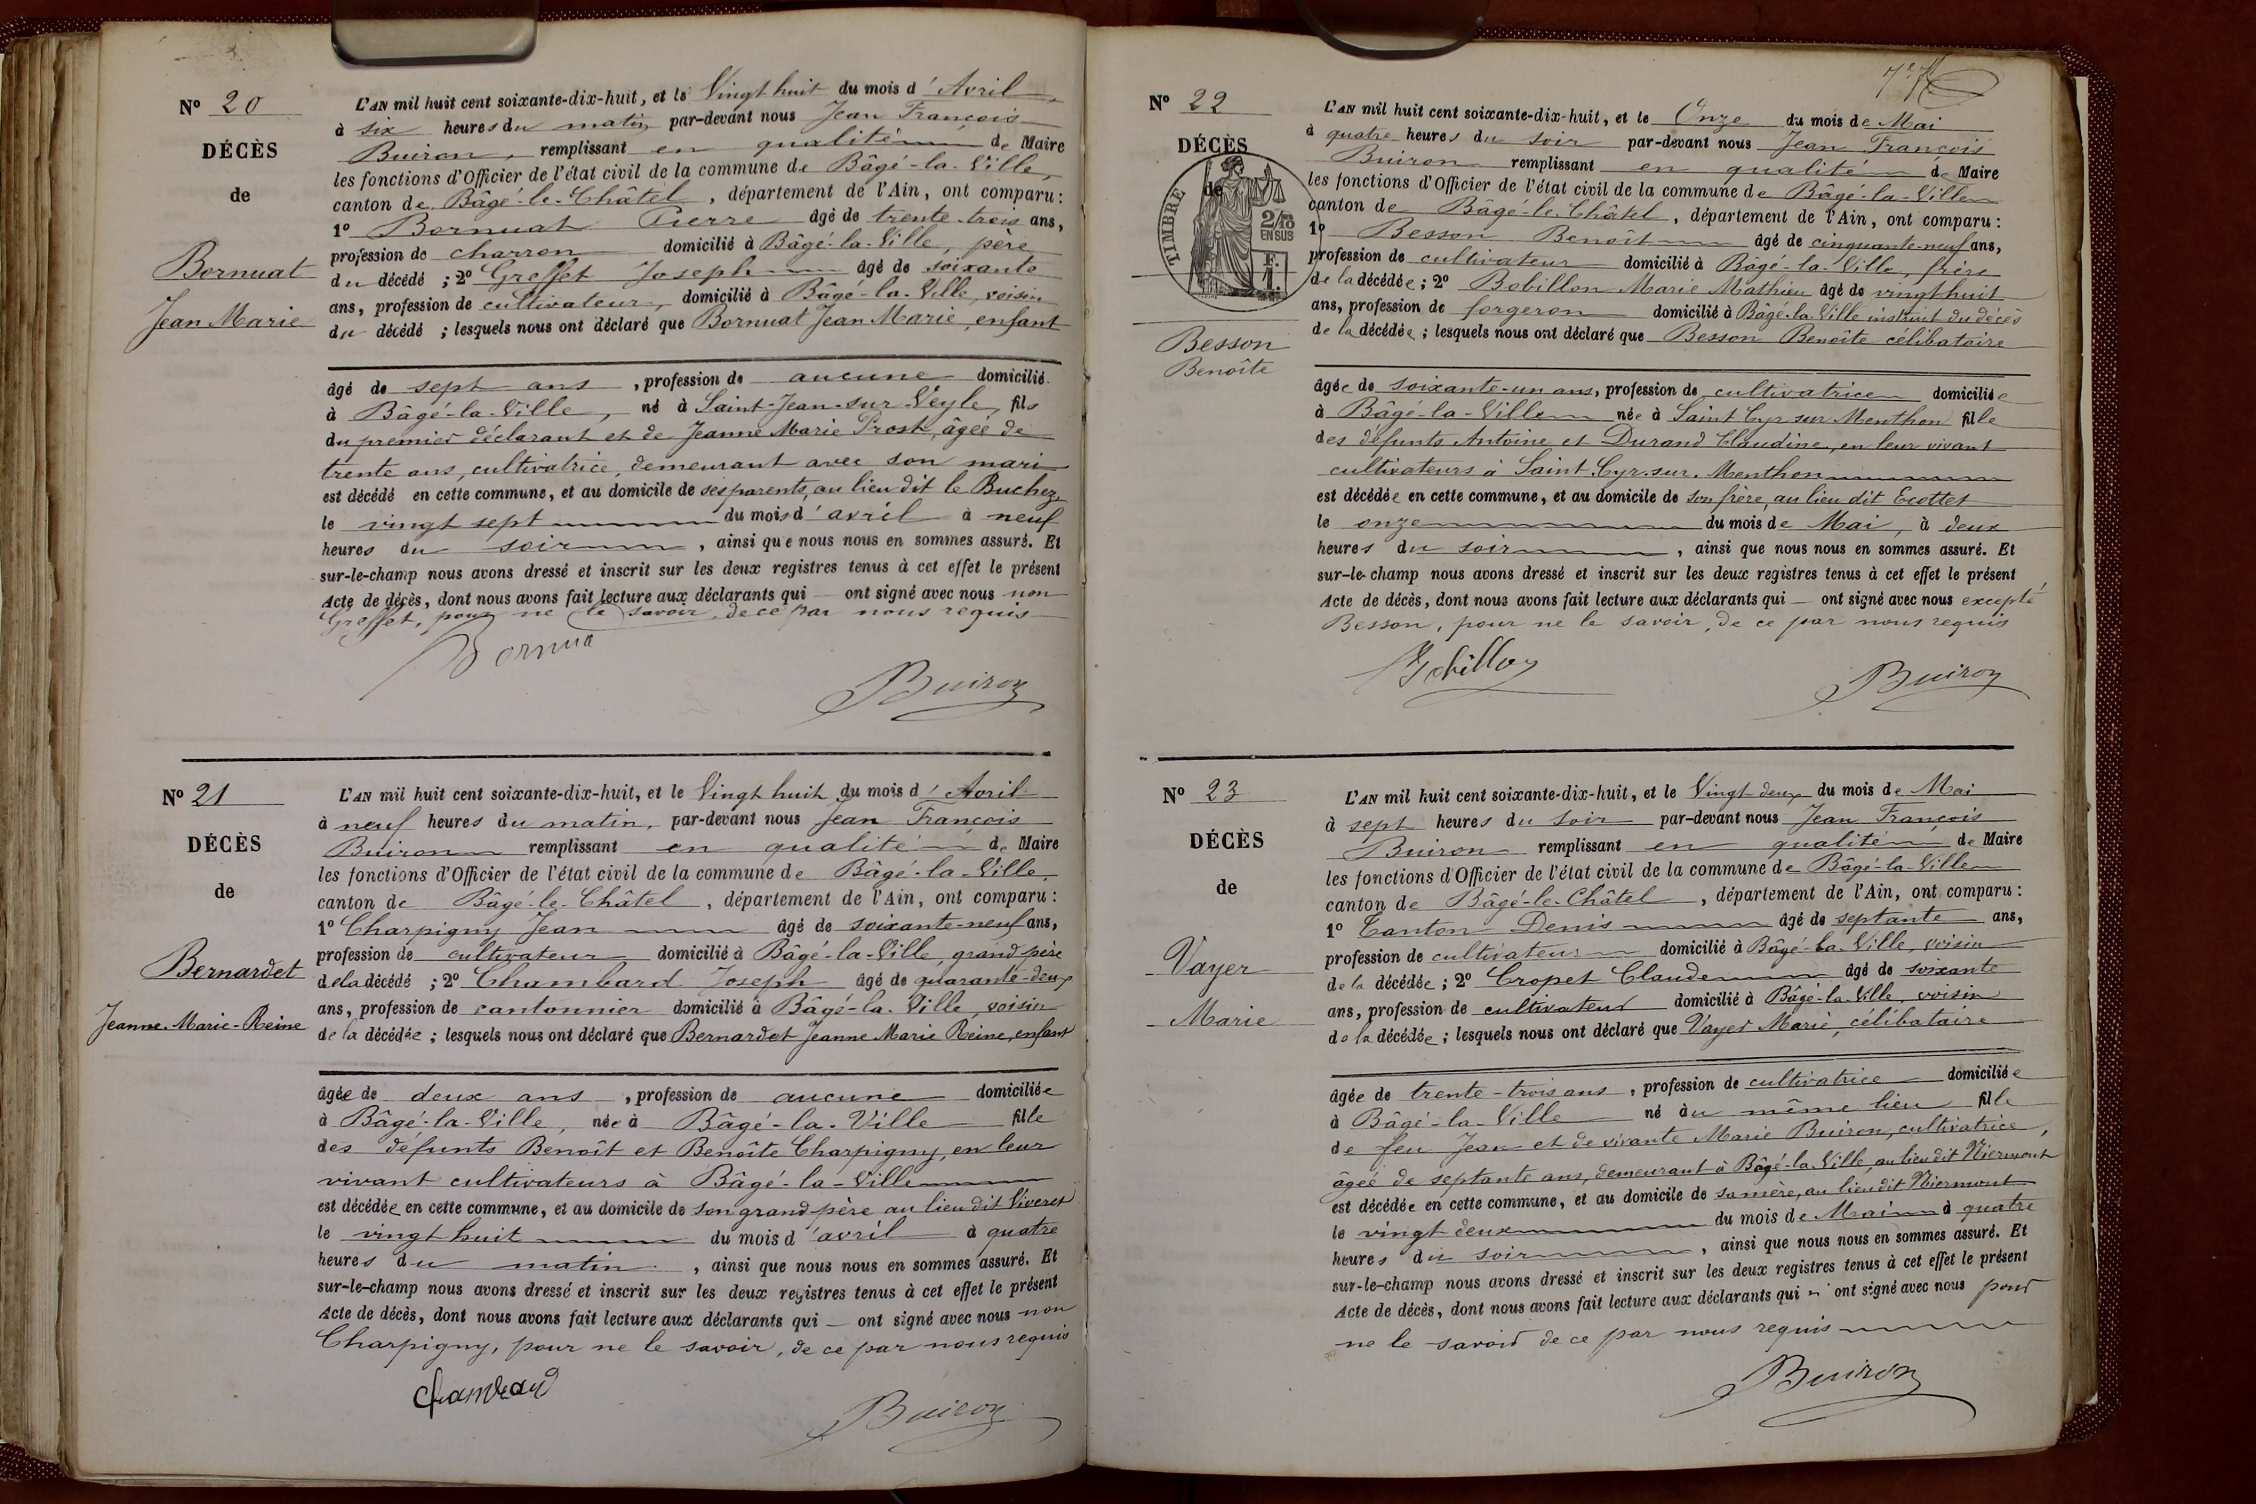 N° 20
DÉCÈS
de
Bornuat
Jean Marie
L'AN mil huit cent soixante-dix-huit, et le Vingt huit du mois d'Avril
à six heures du matin, par-devant nous Jean François
Buiron, remplissant en qualité de Maire
les fonctions d'Officier de l'état civil de la commune de Bâgé-la-Ville,
canton de Bâgé-le-Châtel, département de l'Ain, ont comparu :
1° Bornuat Pierre âgé de trente-trois ans,
profession de charron domicilié à Bâgé-la-Ville, père
du décédé ; 2° Greffet Joseph âgé de soixante
ans, profession de cultivateur, domicilié à Bâgé-la-Ville, voisin
du décédé ; lesquels nous ont déclaré que Bornuat Jean Marie, enfant
âgé de sept ans, profession de aucune domicilié
à Bâgé-la-Ville, né à Saint-Jean-sur-Veyle, fils
du premier déclarant et de Jeanne Marie Prost, âgée de
trente ans, cultivatrice, demeurant avec son mari
est décédé en cette commune, et au domicile de ses parents, au lieu dit le Buchez,
le vingt sept du mois d'avril à neuf
heures du soir, ainsi que nous nous en sommes assuré. Et
sur-le-champ nous avons dressé et inscrit sur les deux registres tenus à cet effet le présent
Acte de décès, dont nous avons fait lecture aux déclarants qui — ont signé avec nous non
Greffet, pour ne le savoir, de ce par nous requis
Bornua
Buiron
N° 21
DÉCÈS
de
Bernardet
Jeanne-Marie-Reine
L'AN mil huit cent soixante-dix-huit, et le Vingt huit du mois d'Avril
à neuf heures du matin, par-devant nous Jean François
Buiron remplissant en qualité de Maire
les fonctions d'Officier de l'état civil de la commune de Bâgé-la-Ville,
canton de Bâgé-le-Châtel, département de l'Ain, ont comparu :
1° Charpigny Jean âgé de soixante-neuf ans,
profession de cultivateur domicilié à Bâgé-la-Ville, grand père
de la décédé ; 2° Chambard Joseph âgé de quarante-deux
ans, profession de cantonnier domicilié à Bâgé-la-Ville, voisin
de la décédée ; lesquels nous ont déclaré que Bernardet Jeanne Marie Reine, enfant
âgée de deux ans, profession de aucune domiciliée
à Bâgé-la-Ville, née à Bâgé-la-Ville fille
des défunts Benoît et Benoîte Charpigny, en leur
vivant cultivateurs à Bâgé-la-Ville
est décédée en cette commune, et au domicile de son grand père au lieu dit Viveret
le vingt huit du mois d'avril à quatre
heures du matin, ainsi que nous nous en sommes assuré. Et
sur-le-champ nous avons dressé et inscrit sur les deux registres tenus à cet effet le présent
Acte de décès, dont nous avons fait lecture aux déclarants qui — ont signé avec nous non
Charpigny, pour ne le savoir, de ce par nous requis
Chambard
Buiron
N° 22
DÉCÈS
de
TIMBRE
2/10
EN SUS
F.
1.
Besson
Benoîte
L'AN mil huit cent soixante-dix-huit, et le Onze du mois de Mai
à quatre heures du soir par-devant nous Jean François
Buiron remplissant en qualité de Maire
les fonctions d'Officier de l'état civil de la commune de Bâgé-la-Ville
canton de Bâgé-le-Châtel, département de l'Ain, ont comparu :
1° Besson Benoît âgé de cinquante-neuf ans,
profession de cultivateur domicilié à Bâgé-la-Ville, frère
de la décédée ; 2° Bobillon Marie Mathieu âgé de vingt huit
ans, profession de forgeron domicilié à Bâgé-la-Ville instruit du décès
de la décédée ; lesquels nous ont déclaré que Besson Benoîte célibataire
âgée de soixante-un ans, profession de cultivatrice domiciliée
à Bâgé-la-Ville née à Saint Cyr sur Menthon fille
des défunts Antoine et Durand Claudine, en leur vivant
cultivateurs à Saint Cyr-sur-Menthon
est décédée en cette commune, et au domicile de son frère, au lieu dit Ecottet
le onze du mois de Mai, à deux
heures du soir, ainsi que nous nous en sommes assuré. Et
sur-le-champ nous avons dressé et inscrit sur les deux registres tenus à cet effet le présent
Acte de décès, dont nous avons fait lecture aux déclarants qui — ont signé avec nous excepté
Besson, pour ne le savoir, de ce par nous requis
Bobillon
Buiron
N° 23
DÉCÈS
de
Vayer
Marie
L'AN mil huit cent soixante-dix-huit, et le Vingt deux du mois de Mai
à sept heures du soir par-devant nous Jean François
Buiron remplissant en qualité de Maire
les fonctions d'Officier de l'état civil de la commune de Bâgé-la-Ville
canton de Bâgé-le-Châtel, département de l'Ain, ont comparu :
1° Tanton Denis âgé de septante ans,
profession de cultivateur domicilié à Bâgé-la-Ville, voisin
de la décédée ; 2° Cropet Claude âgé de soixante
ans, profession de cultivateur domicilié à Bâgé-la-Ville, voisin
de la décédée ; lesquels nous ont déclaré que Vayer Marie, célibataire
âgée de trente-trois ans, profession de cultivatrice domiciliée
à Bâgé-la-Ville né au même lieu fille
de feu Jean et de vivante Marie Buiron, cultivatrice,
âgée de septante ans, demeurant à Bâgé-la-Ville, au lieu dit Niermont
est décédée en cette commune, et au domicile de sa mère, au lieu dit Niermont
le vingt deux du mois de Mai à quatre
heures du soir, ainsi que nous nous en sommes assuré. Et
sur-le-champ nous avons dressé et inscrit sur les deux registres tenus à cet effet le présent
Acte de décès, dont nous avons fait lecture aux déclarants qui n'ont signé avec nous pour
ne le savoir de ce par nous requis
Buiron